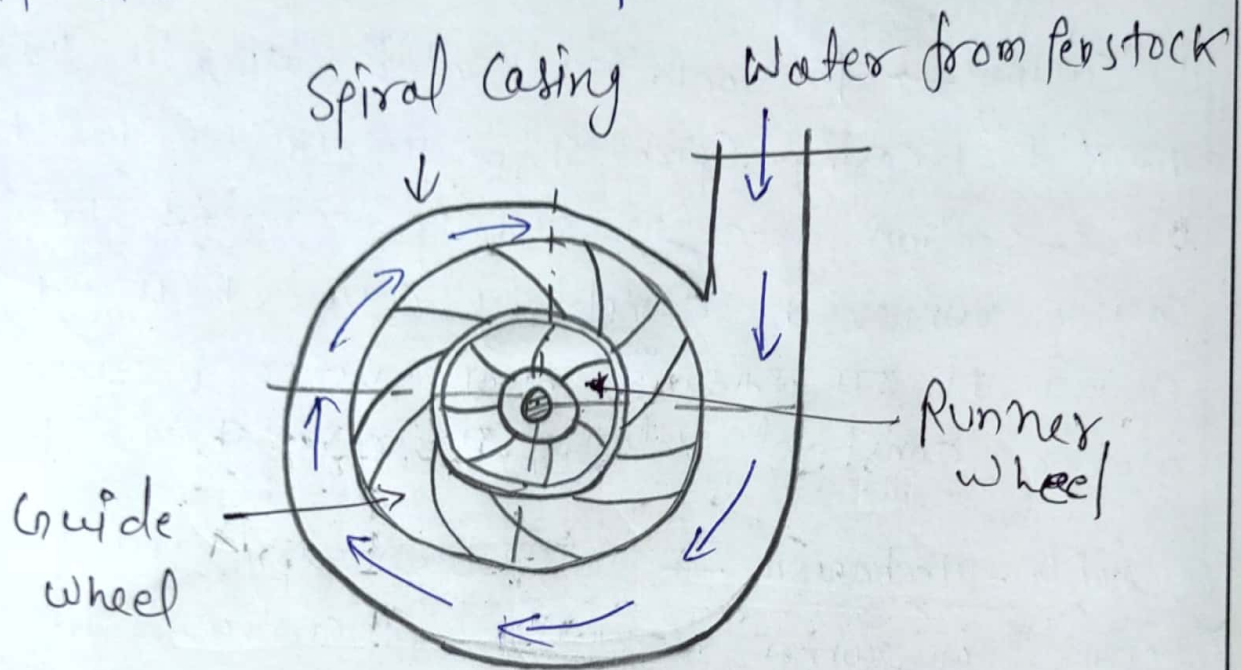 Spiral Casing
Water from Penstock
Runner
wheel
Guide
wheel